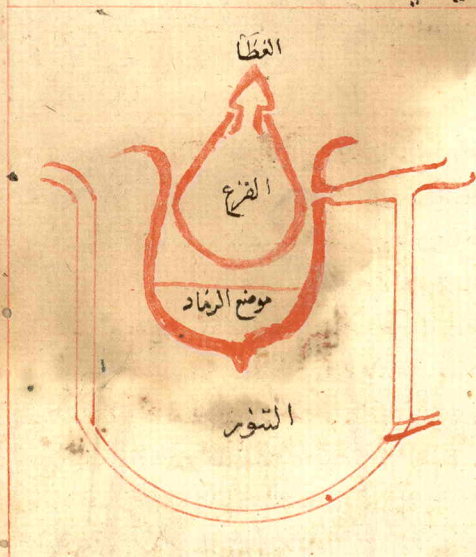 الغطا
القرع
موضع الرماد
التنور